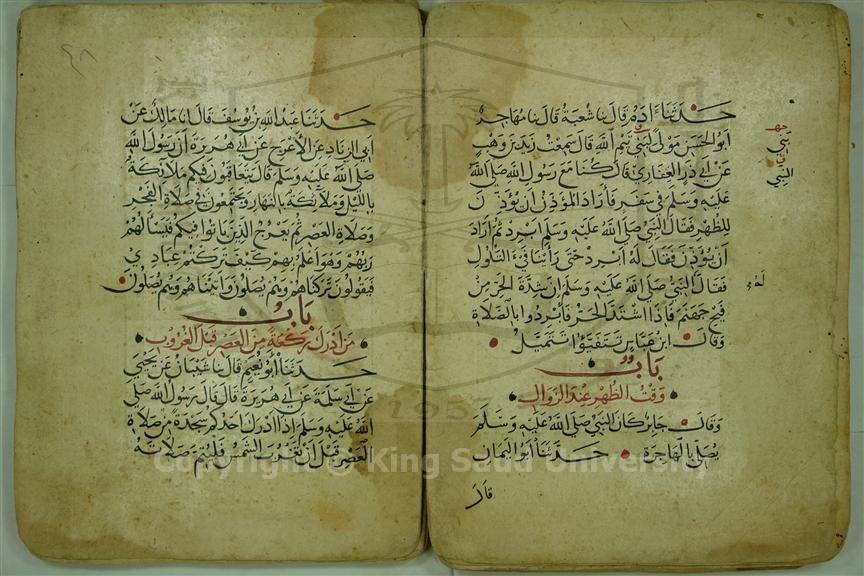 حدثنا آدم قال نا شعبة قال نا مهاجر
ابو الحسن مولى لبني تيم الله قال سمعت زيد بن وهب
عن ابي ذر الغفاري قال كنا مع رسول الله صلى الله
عليه وسلم في سفر فاراد المؤذن ان يؤذن
للظهر فقال النبي صلى الله عليه وسلم ابرد ثم اراد
ان يؤذن فقال له ابرد حتى راينا فيء التلول
فقال النبي صلى الله عليه وسلم ان شدة الحر من
فيح جهنم فاذا اشتد الحر فابردوا بالصلاة
وقال ابن عباس تتفيؤا تتميل
باب
وقت الظهر عند الزوال
وقال جابر كان النبي صلى الله عليه وسلم
يصلي بالهاجرة حدثنا ابو اليمان
قال
بني
النبي
حدثنا عبد الله بن يوسف قال انا مالك عن
ابي الزناد عن الاعرج عن ابي هريرة ان رسول الله
صلى الله عليه وسلم قال يتعاقبون فيكم ملائكة
بالليل وملائكة بالنهار ويجتمعون في صلاة الفجر
وصلاة العصر ثم يعرج الذين باتوا فيكم فيسألهم
ربهم وهو اعلم بهم كيف تركتم عبادي
فيقولون تركناهم وهم يصلون واتيناهم وهم يصلون
باب
من ادرك ركعة من العصر قبل الغروب
حدثنا ابو نعيم قال نا شيبان عن يحيى
عن ابي سلمة عن ابي هريرة قال قال رسول الله صلى
الله عليه وسلم اذا ادرك احدكم سجدة من صلاة
العصر قبل ان تغرب الشمس فليتم صلاته
٤٨
1957
Copyright © King Saud University